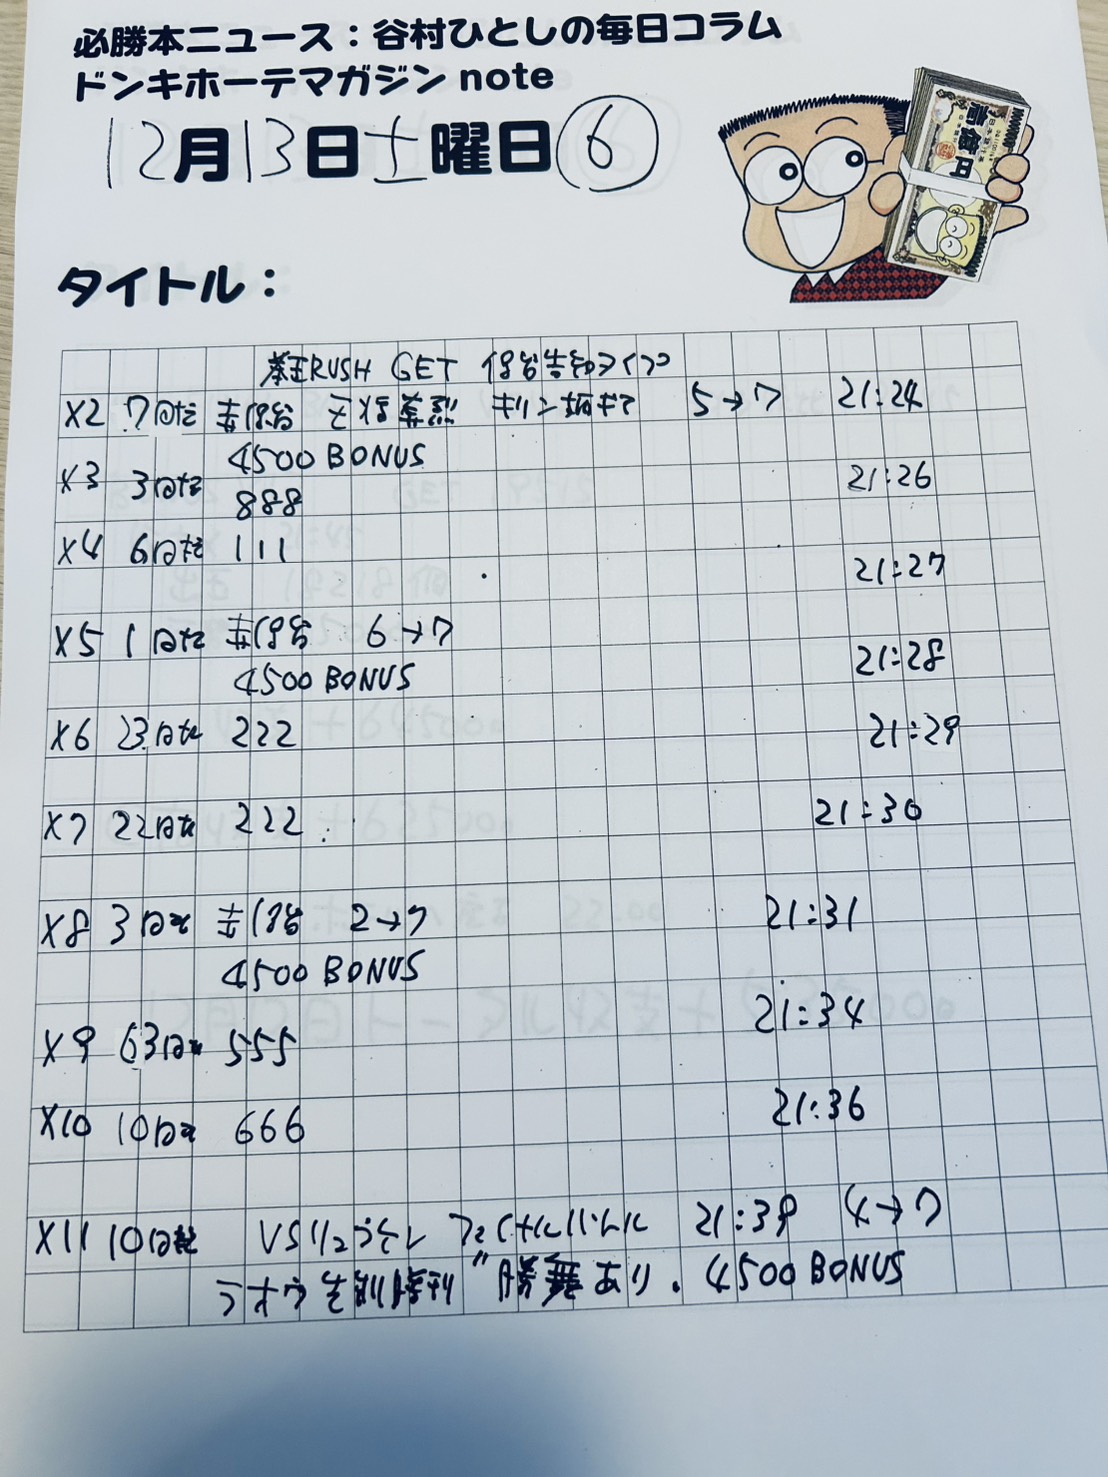 必勝本ニュース：谷村ひとしの毎日コラム
ドンキホーテマガジンnote
12月13日土曜日⑥
壱億円
タイトル：
拳王RUSH GET 保留告知タイプ
X2 7回転 赤保留 キリン柄 5→7 21:24
4500 BONUS
X3 3回転 21:26
888
X4 6回転 111
21:27
X5 1回転 赤保留 6→7
21:28
4500 BONUS
X6 23回転 222 21:29
X7 22回転 222 21:30
X8 3回転 赤保留 2→7 21:31
4500 BONUS
21:34
X9 63回転 555
X10 10回転 666 21:36
X11 10回転 VSリュウケン ファイナルバトル 21:39 4→7
ラオウ 勝利 "勝舞あり. 4500 BONUS